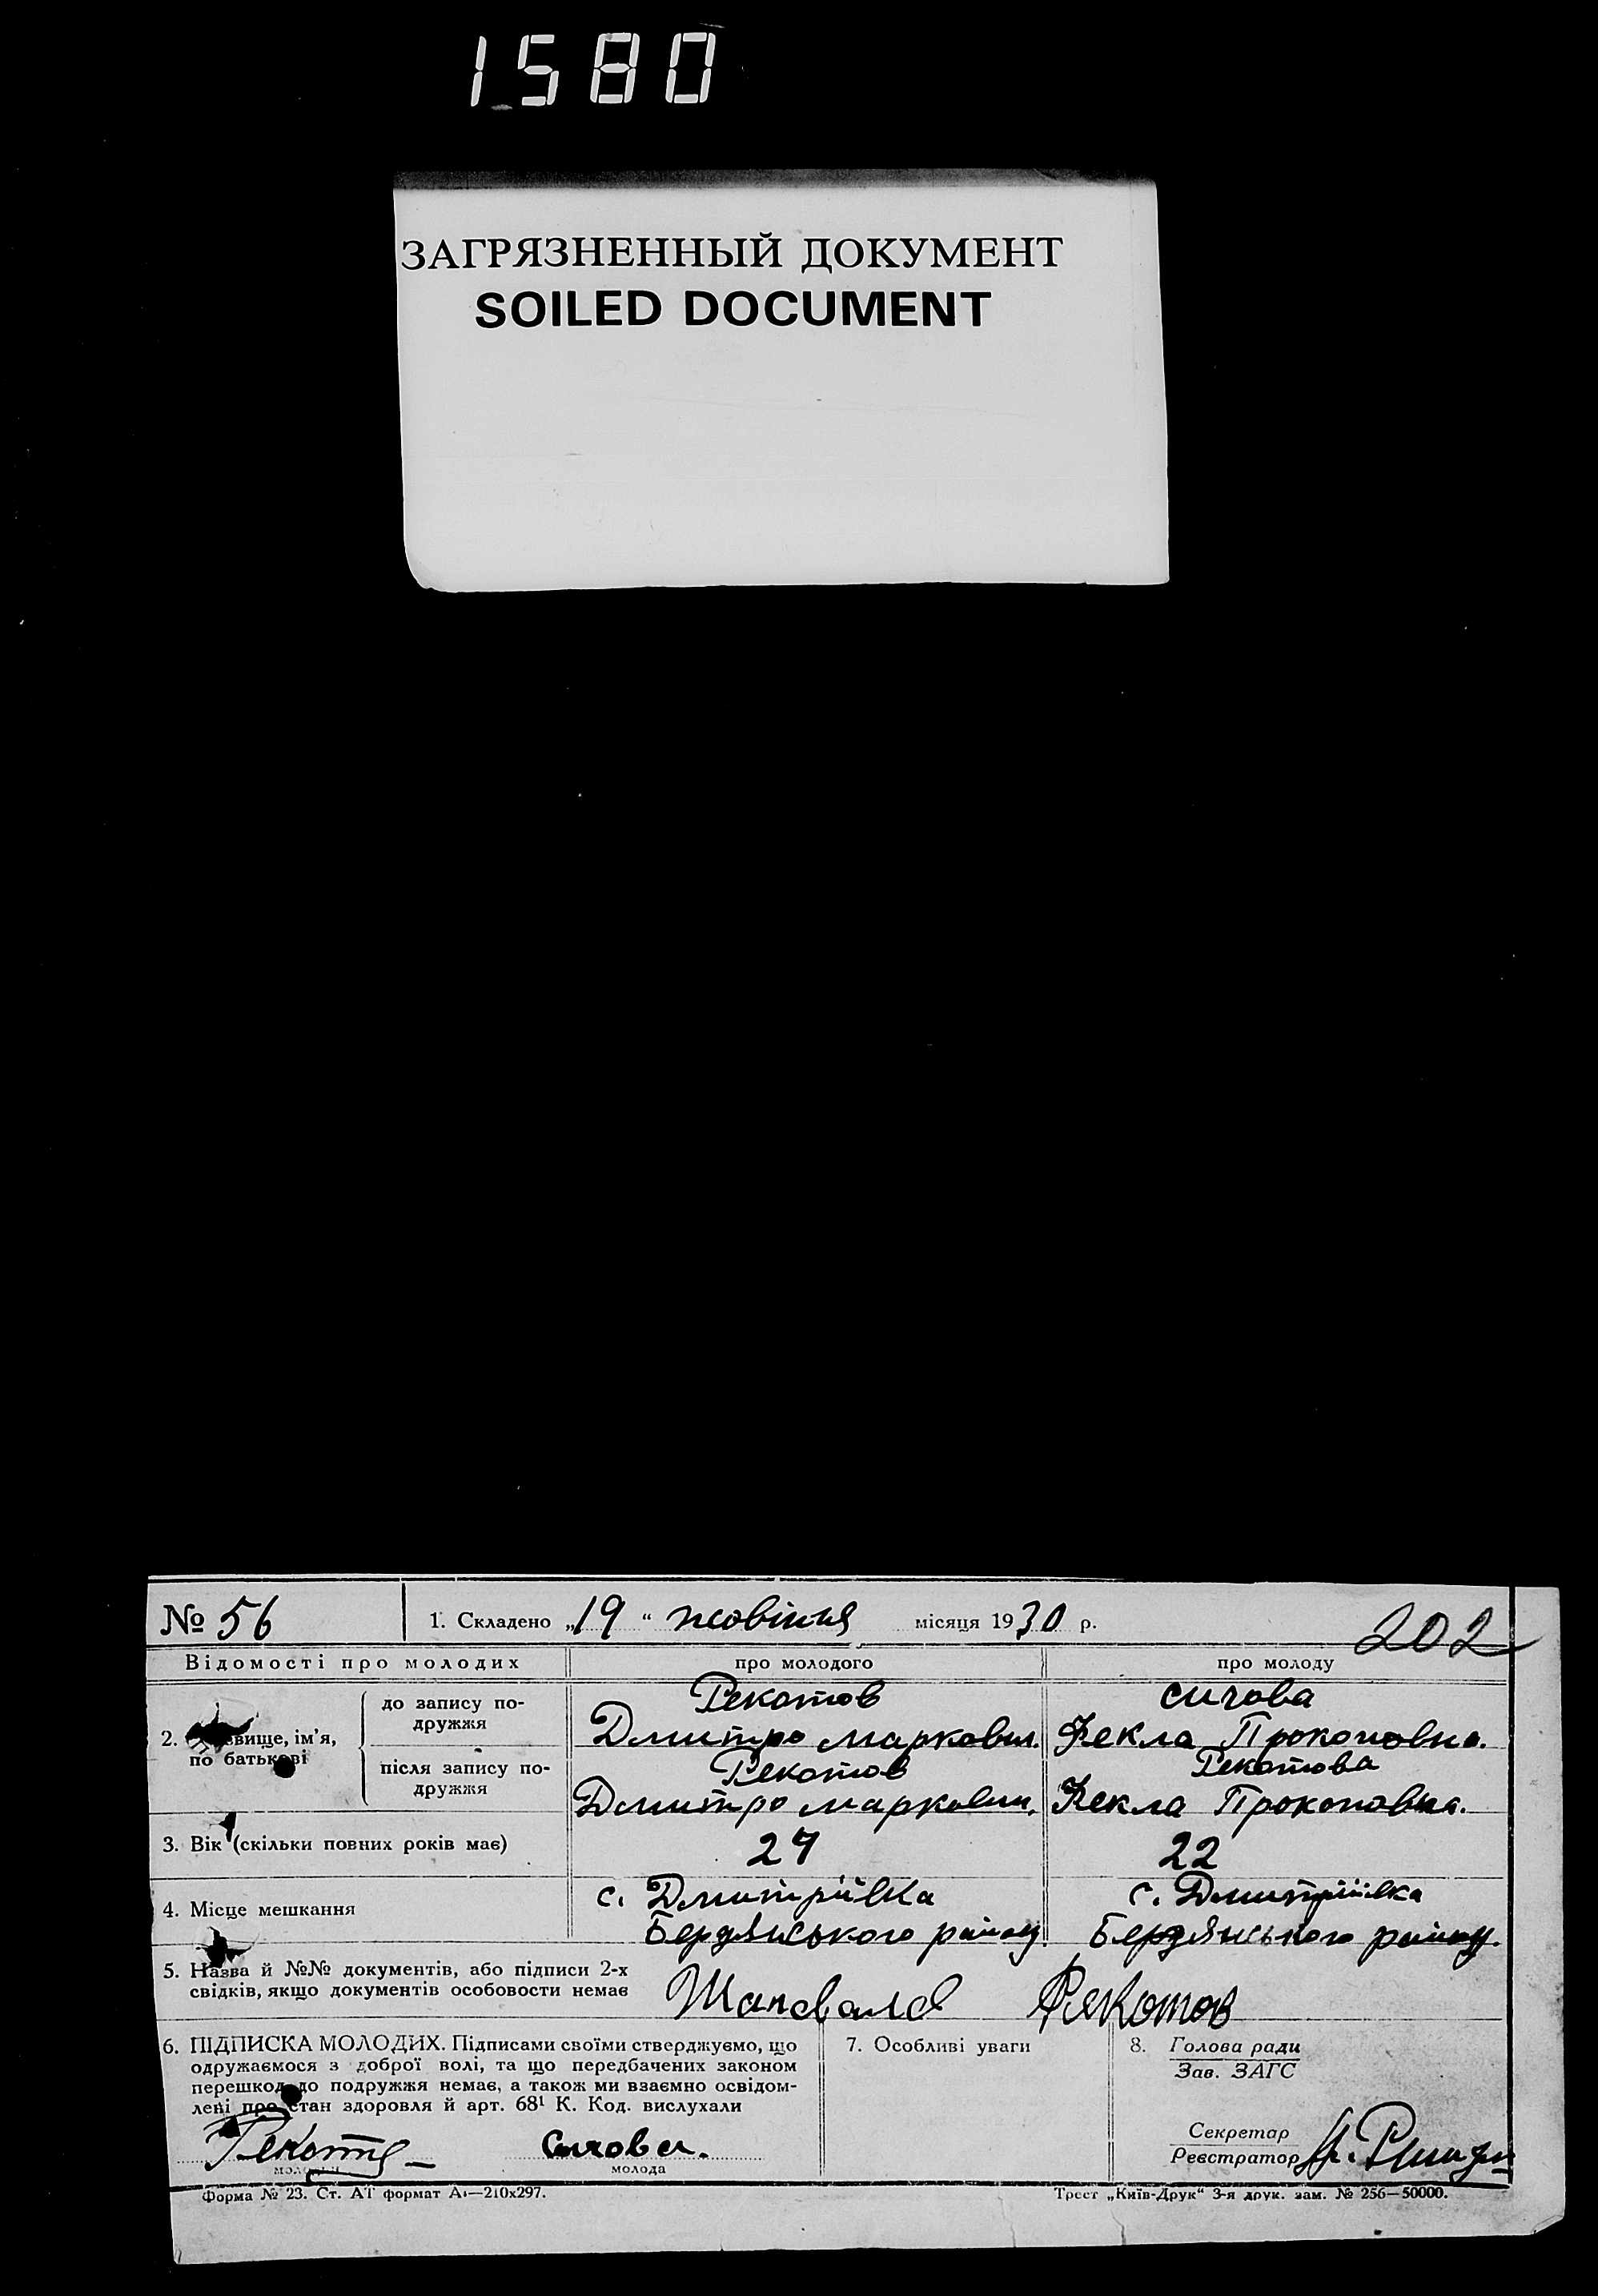 1580
ЗАГРЯЗНЕННЫЙ ДОКУМЕНТ
SOILED DOCUMENT
№ 56
1. Складено „19“ жовтня місяця 1930 р.
202
Відомості про молодих
про молодого
про молоду
2. вище, ім'я, по батькові
до запису по-
дружжя
Рекотов
Дмитро Маркович.
Сичова
Фекла Прокоповна.
після запису по-
дружжя
Рекотов
Дмитро Маркович.
Рекотова
Фекла Прокоповна.
3. Вік (скільки повних років має)
24
22
4. Місце мешкання
с. Дмитрівка
Бердянського району.
с. Дмитрівка
Бердянського району.
5. Назва й №№ документів, або підписи 2-х
свідків, якщо документів особовости немає
Шаповалов Рекотов
6. ПІДПИСКА МОЛОДИХ. Підписами своїми стверджуємо, що
одружаємося з доброї волі, та що передбачених законом
перешкод до подружжя немає, а також ми взаємно освідом-
лені про стан здоровля й арт. 68¹ К. Код. вислухали
Сичова.
молода
7. Особливі уваги
8. Голова ради
Зав. ЗАГС
Секретар
Реєстратор
Форма № 23. Ст. АТ формат А₄—210х297.
Трест „Київ-Друк“ 3-я друк. зам. № 256—50000.